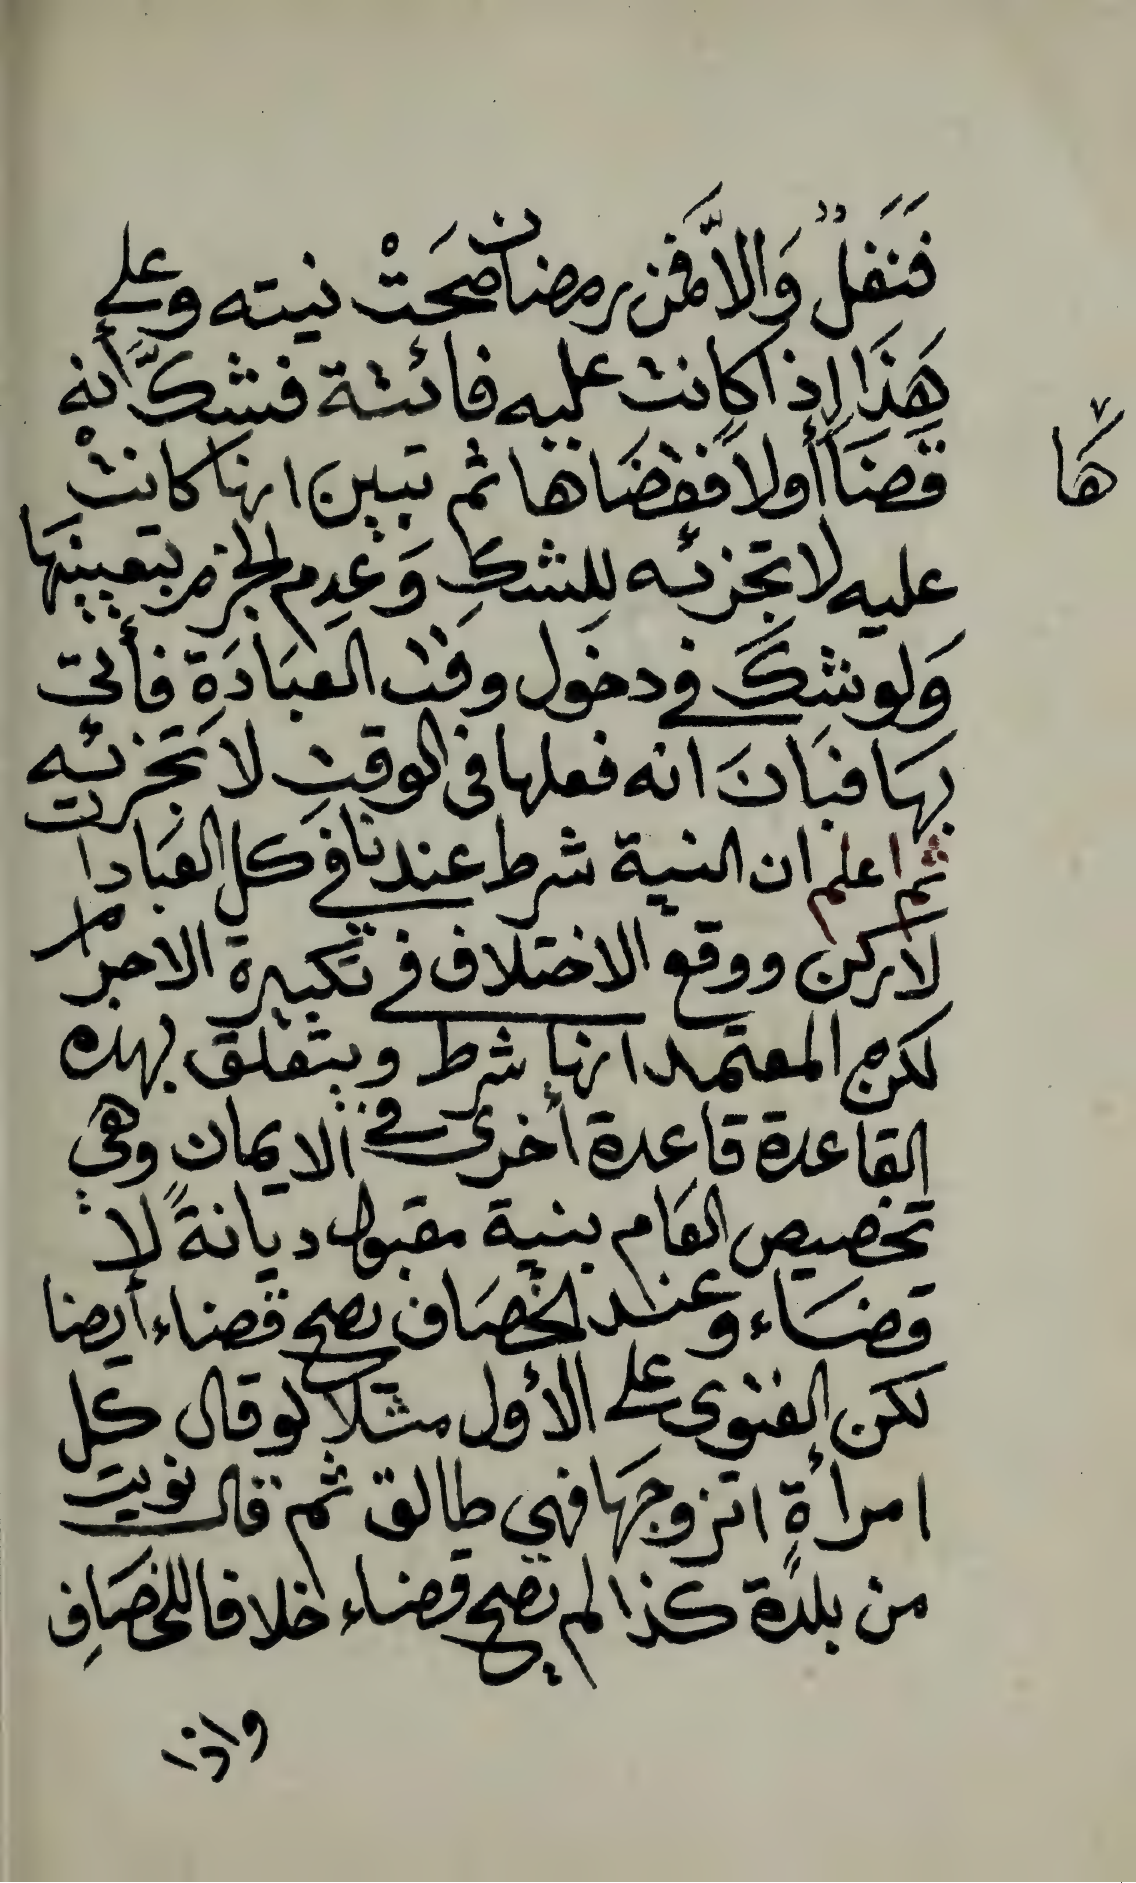 فَنَفلٌ وَالاَّ فمن رمضان صَحَتْ نيته وعلي
هَذَا إذا كانت عليه فائتة فشكَّ أنه
قضَاَ أولاً فقضَاها ثم تبين انها كانتْ
ها
عليه لا تجزئه للشكِ وَعَدِم الجزم بتعيينهَا
وَلو شكَّ في دخَول وقت العبَادَة فأتى
بهَا فبَانَ انه فعلها فى الوقتِ لا تَجزئه
ثم اعلم ان النية شرط عندنا في كل العبَادات
لا ركن ووقع الاختلاف في تكبيرة الاحرام
لكن المعتمد انها شرط ويتعلق بهذه
القاعدة قاعدة أخرى في الايمان وهي
تخصيص العَام بنية مقبول ديانةً لا
قضَاء وعند الخصَاف يصح قضاء أيضا
لكن الفتوى على الأول مثلا لو قال كل
امرأة اتزوجهَا فهي طالق ثم قال نويت
من بلدة كذا لم يصح قضاء خلافا للخصَافِ
واذا